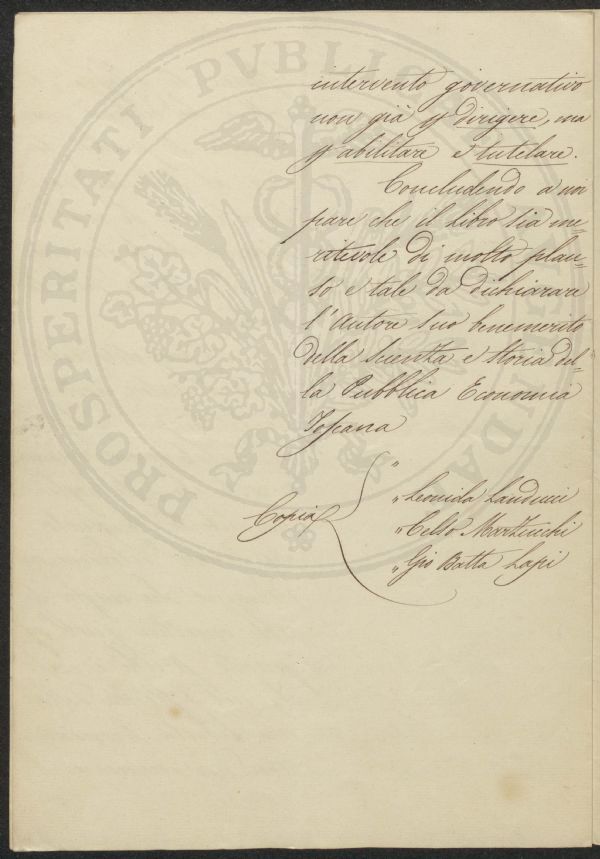 intervento governativo
non già p dirigere, ma
p abilitare e tutelare.
Concludendo a noi
pare che il libro sia me=
ritevole di molto plau=
so e tale da dichiarare
l'Autore suo benemerito
della scienza e storia del=
la Pubblica Economia
Toscana
"
" Leonida Landucci
Copia " Celso Marzucchi
" Gio Batta Lapi
PROSPERITATI PVBLICAE